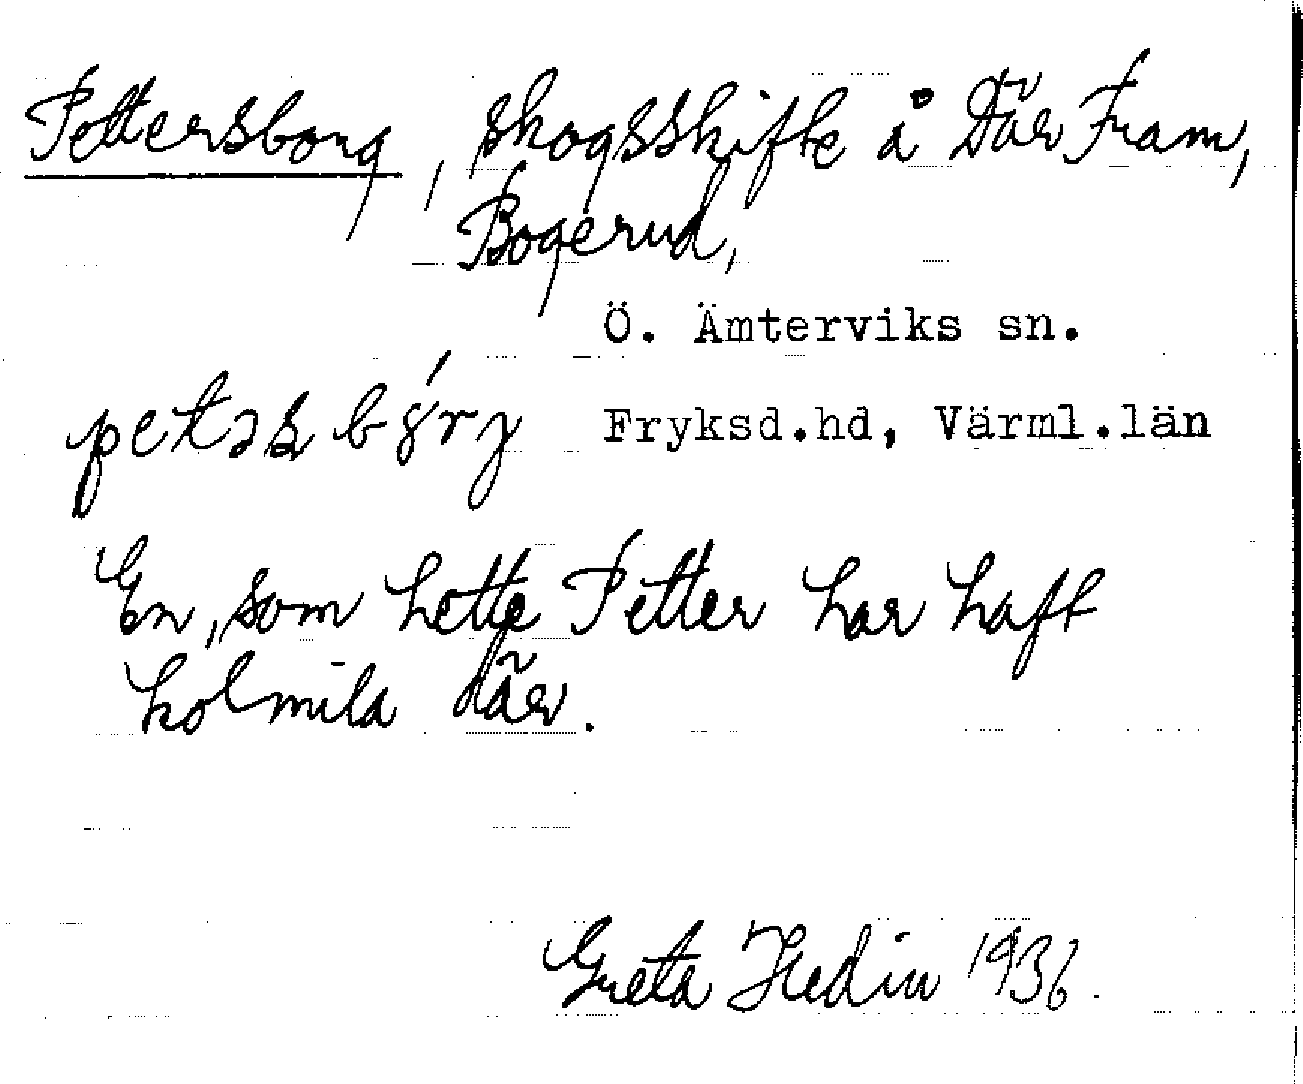 Pettersborg, skogsskifte å Där Fram,
Bogerud,
Ö. Ämterviks sn.
Fryksd.hd, Värml.län
En, som hette Petter har haft
kolmila där.
Greta Hedin 1936.